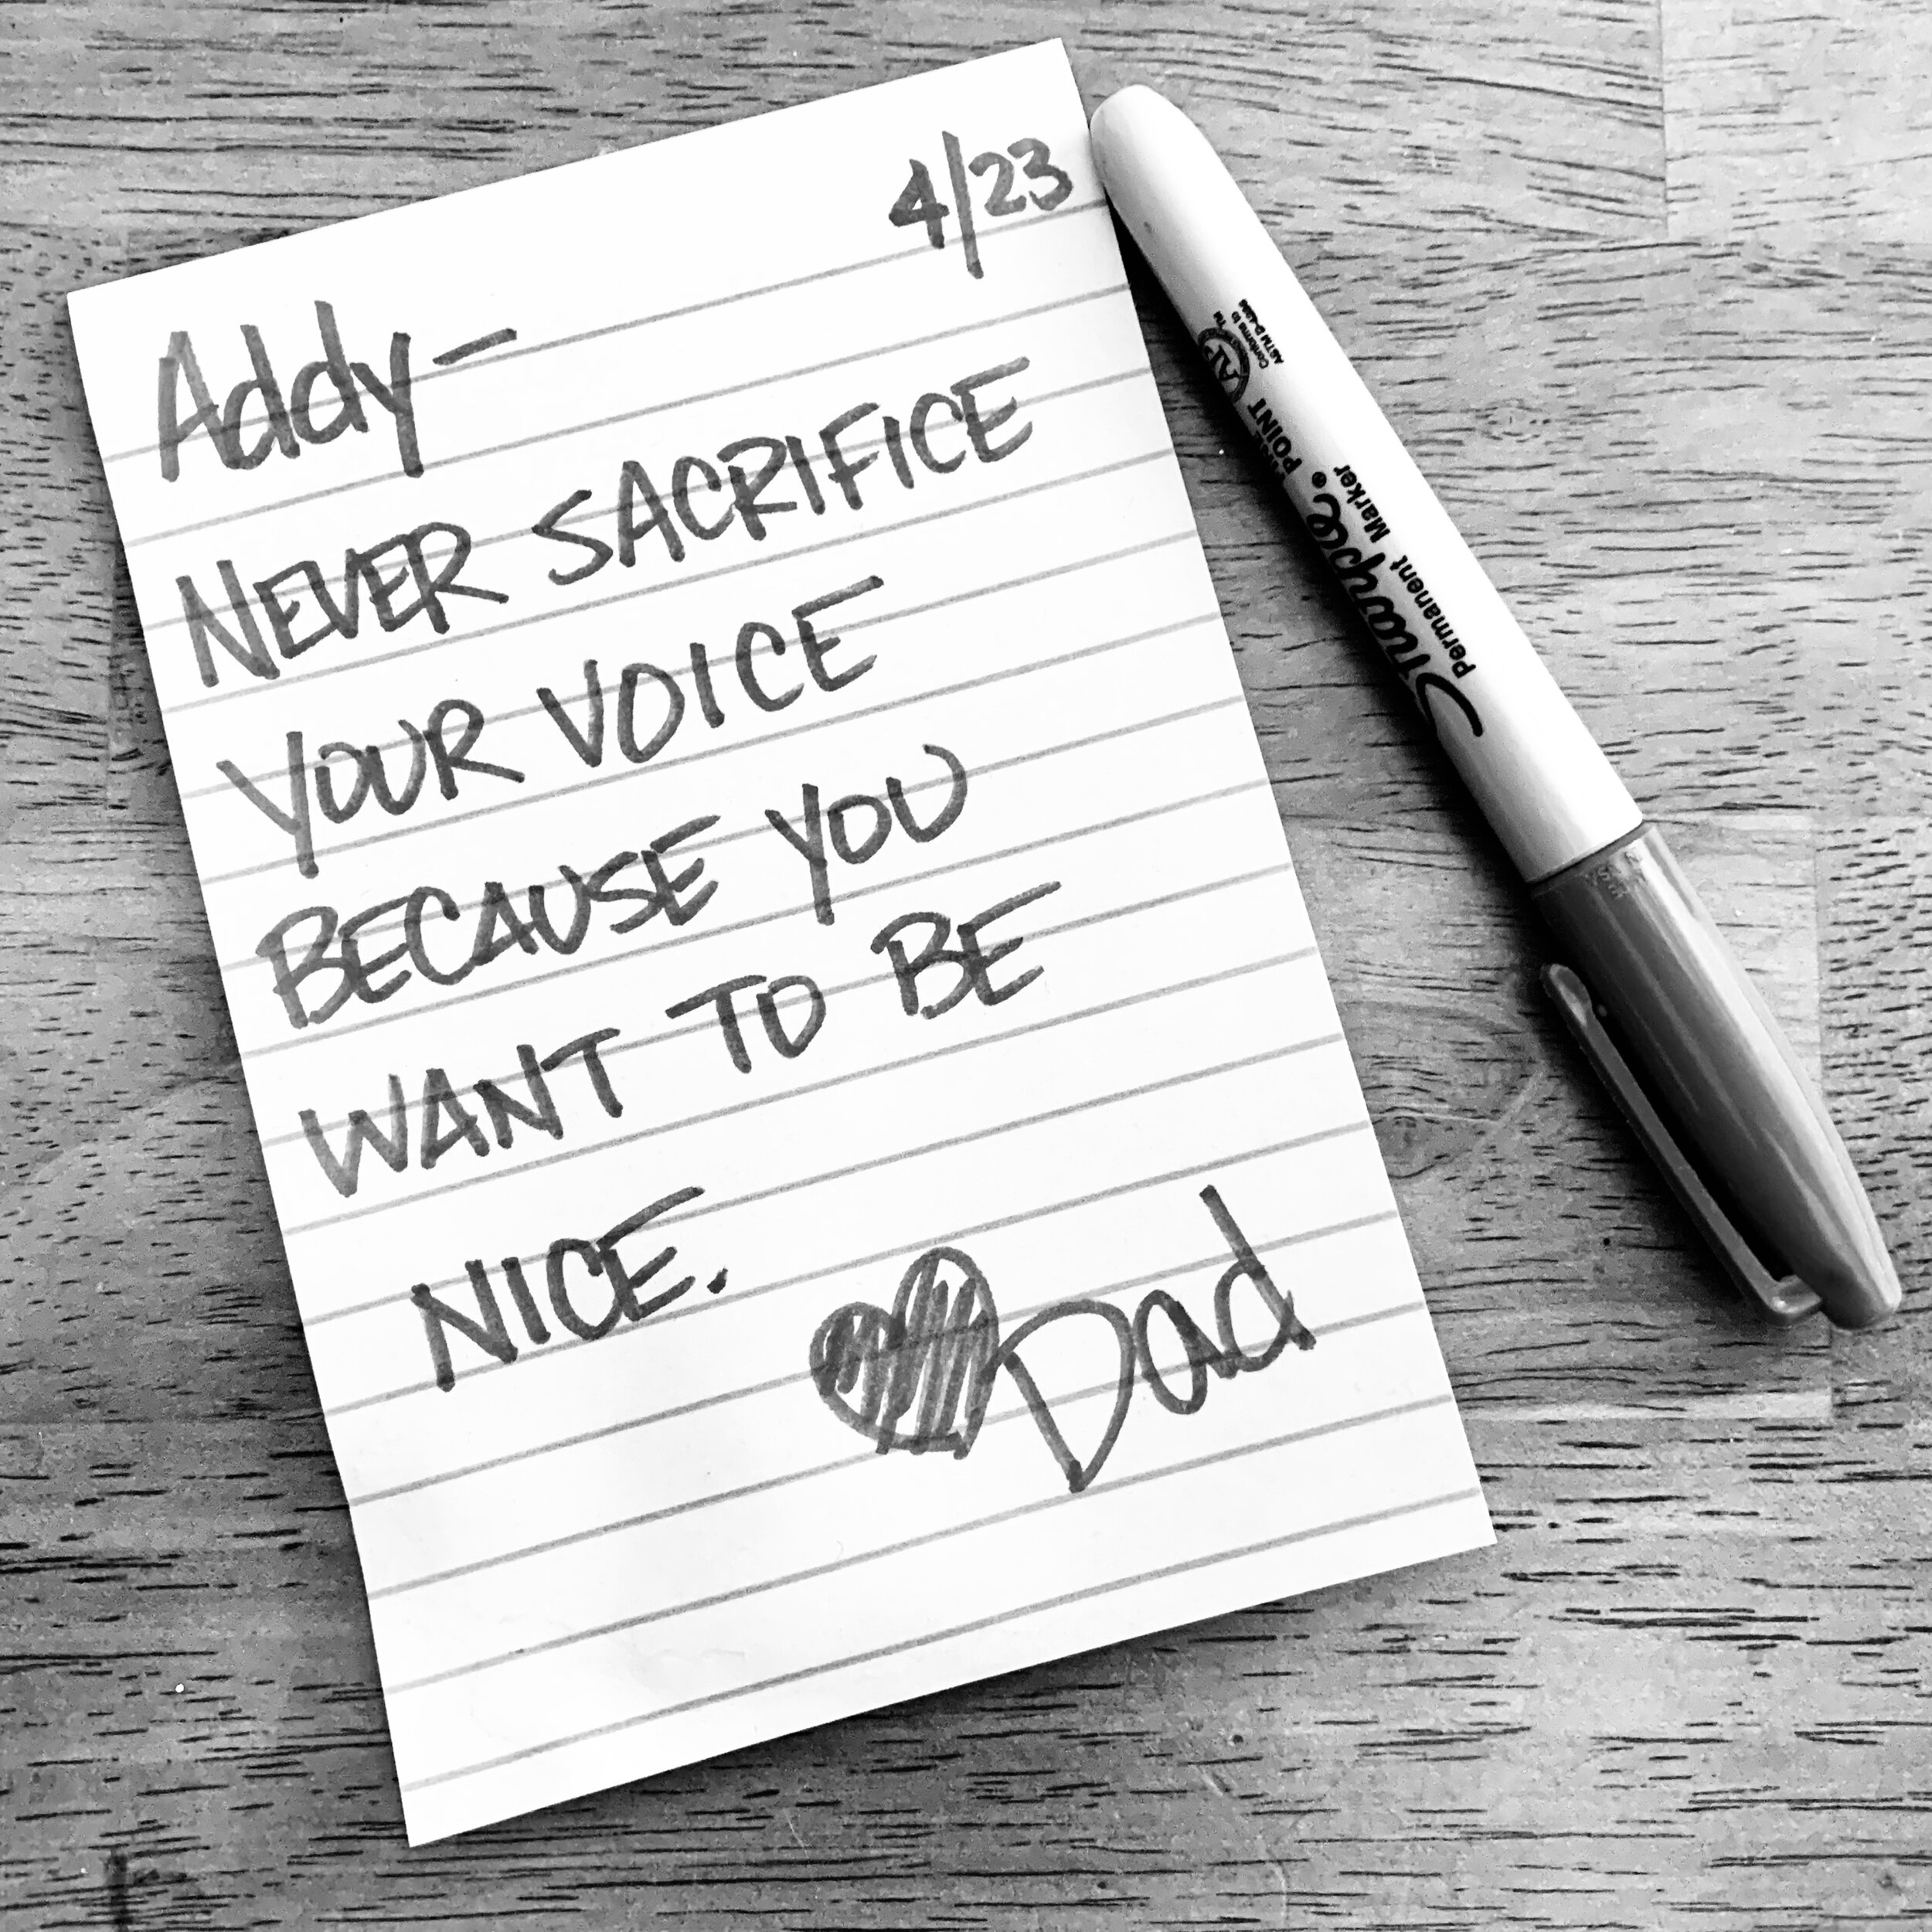 4/23
Addy-
NEVER SACRIFICE
YOUR VOICE
BECAUSE YOU
WANT TO BE
NICE.
Dad
Sharpie®
POINT
Permanent Marker
Conforms to
ASTM D-4236